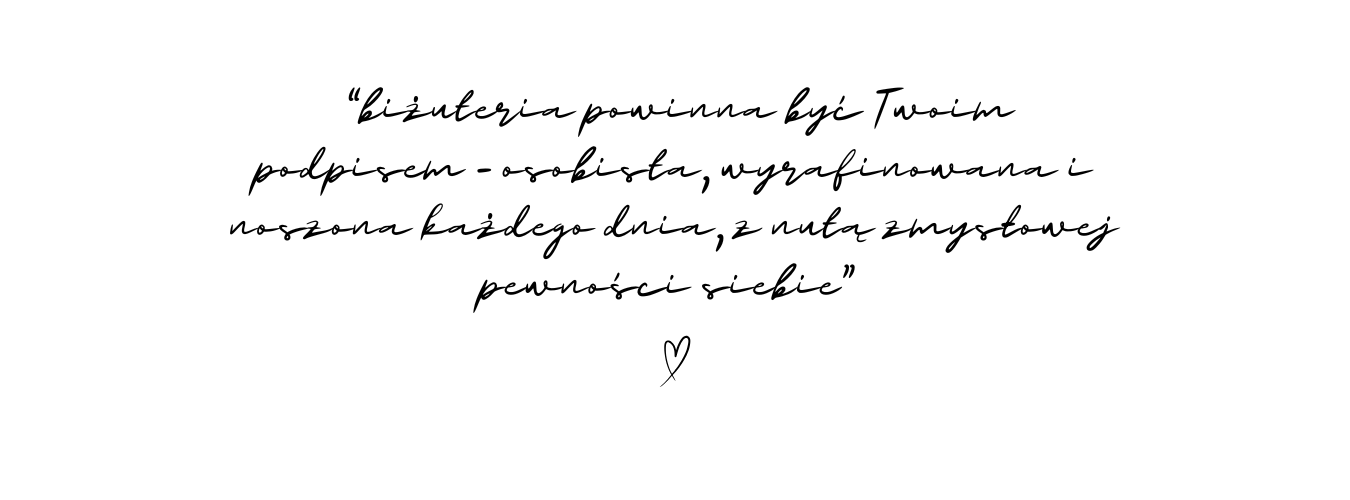 “biżuteria powinna być Twoim
podpisem - osobista, wyrafinowana i
noszona każdego dnia, z nutą zmysłowej
pewności siebie”